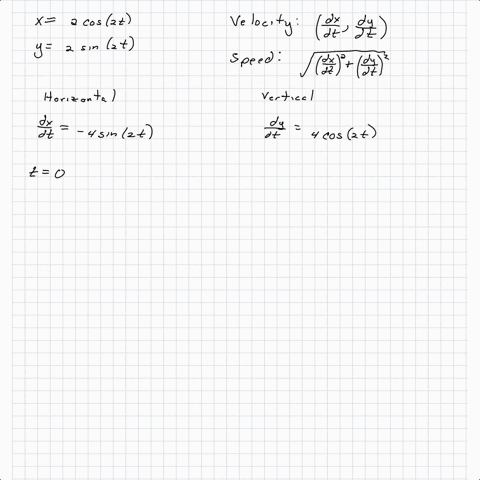 x = 2 cos(2t)
y = 2 sin(2t)
Velocity: (dx/dt, dy/dt)
Speed: √((dx/dt)² + (dy/dt)²)
Horizontal
dx/dt = -4 sin(2t)
Vertical
dy/dt = 4 cos(2t)
t = 0